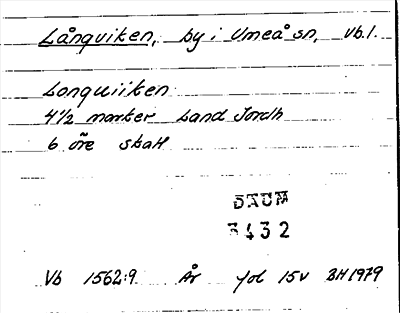 Långviken, by i Umeå sn, Vb.l.
Lonquiiken
4 1/2 marker Land Jordh
6 öre skatt
DAUM
3432
Vb 1562:9 År fol 15v BH 1979